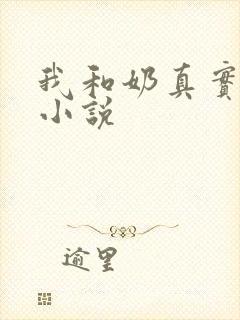 我和奶真實
小說
逾里